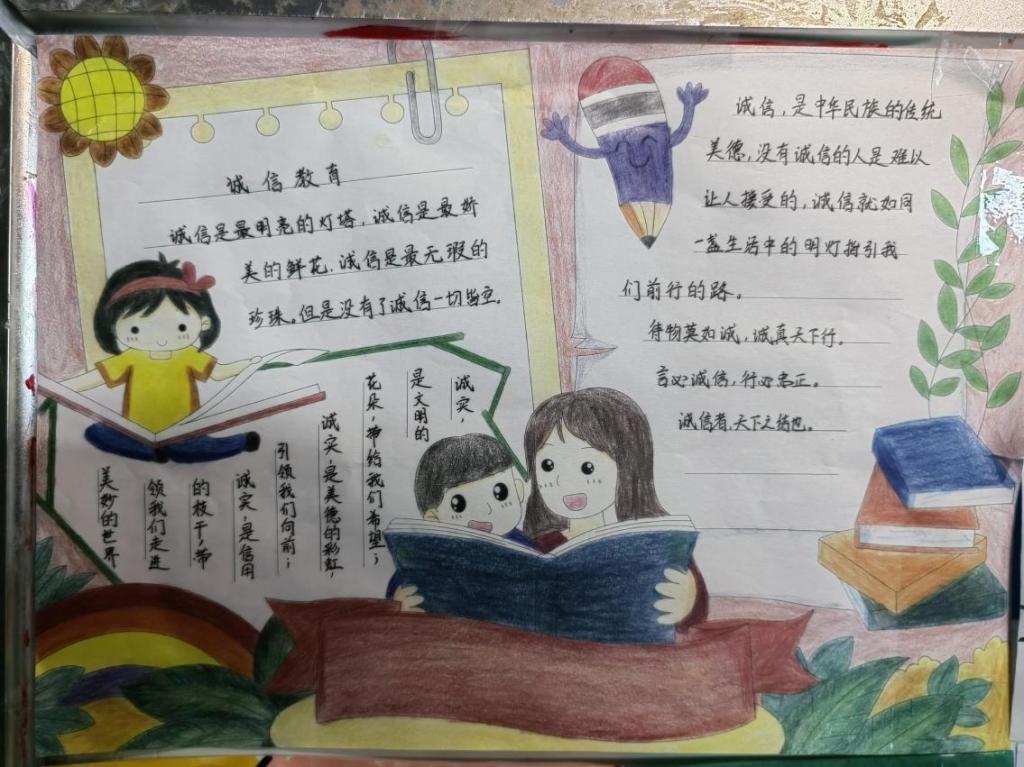 诚信教育
诚信是最明亮的灯塔,诚信是最娇
美的鲜花,诚信是最无瑕的
珍珠。但是没有了诚信一切皆空。
诚实,
是文明的
花朵,带给我们希望;
诚实,是美德的彩虹,
引领我们向前;
诚实,是信用
的枝干,带
领我们走进
美妙的世界
诚信,是中华民族的传统
美德,没有诚信的人是难以
让人接受的,诚信就如同
一盏生活中的明灯指引我
们前行的路。
待物莫如诚,诚真天下行。
言必诚信,行必忠正。
诚信者,天下之结也。